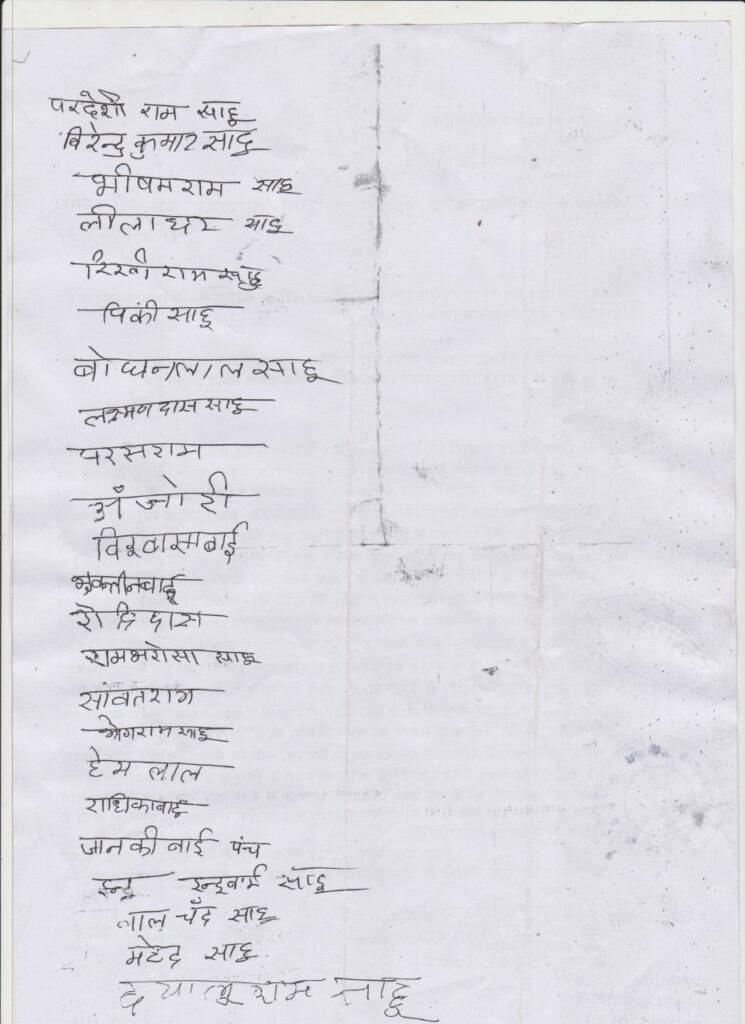 परदेशी राम साहू
विरेन्द्र कुमार साहु
भीषम राम साहु
लीलाधर साहु
रिखी राम साहु
पिंकी साहू
बोधनलाल साहू
लक्ष्मण दास साहु
परसराम
अँजोरी
विश्वासाबाई
भुक्तीनबाई
रोहिदास
रामभरोसा साहु
सांवतराम
साहु
हेमलाल
राधिकाबाई
जानकी बाई पंच
इन्दु साहु
लाल चँद साहु
महेंद्र साहु
दयालू राम साहू